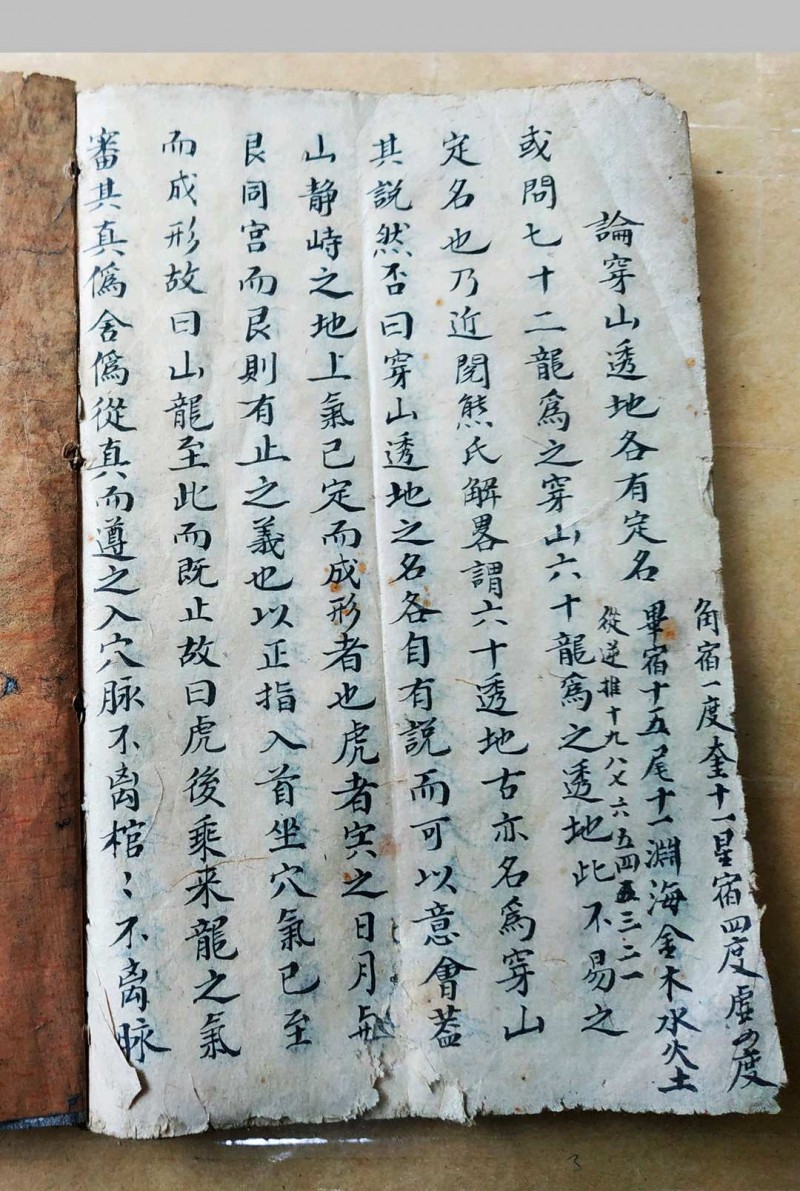 角宿一度奎十一星宿四度虛四度
畢宿十五尾十一淵海金木水火土
從逆推十九八七六五四五三二一
論穿山透地各有定名
或問七十二龍為之穿山六十龍為之透地此不易之
定名也乃近閱熊氏解畧謂六十透地古亦名為穿山
其說然否曰穿山透地之名各自有說而可以意會葢
山静峙之地上氣已定而成形者也虎者寅之日月與
艮同宮而艮則有止之義也以正指入首坐穴氣已至
而成形故曰山龍至此而既止故曰虎後乘来龍之氣
審其真偽舍偽從真而遵之入穴脉不离棺〻不离脉